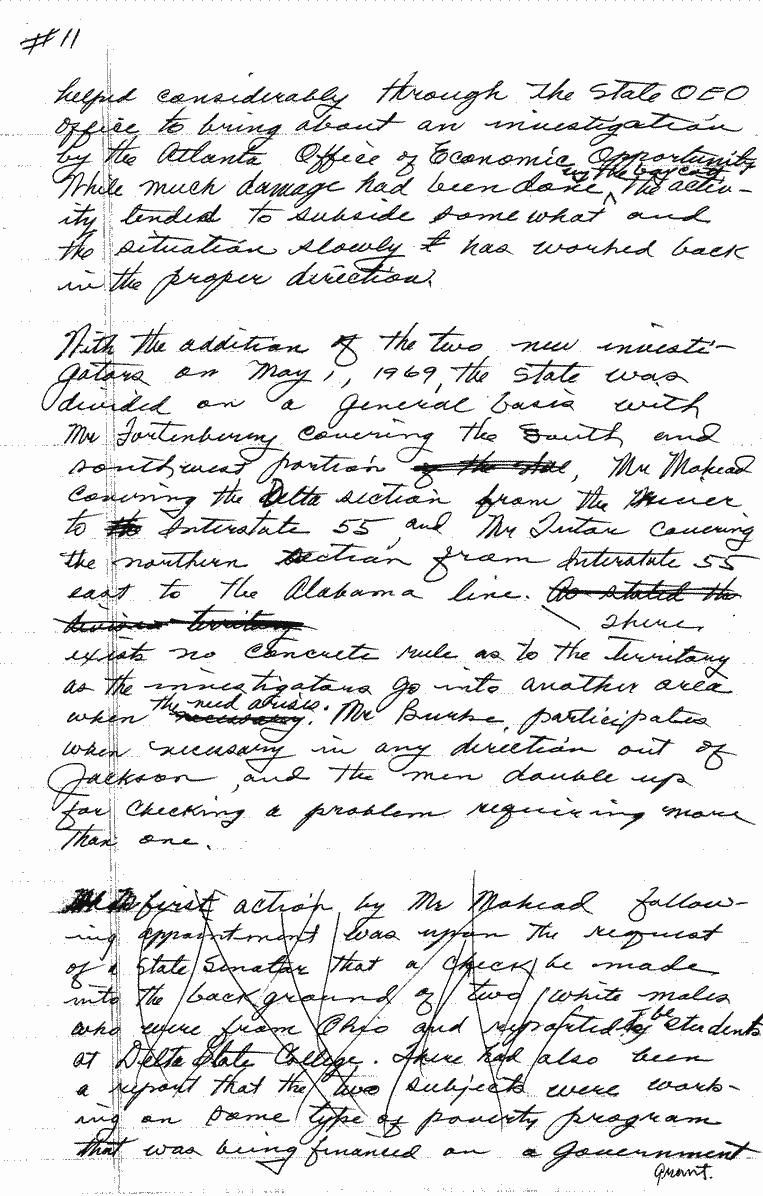 #11
helped considerably through the State OEO
office to bring about an investigation
by the Atlanta Office of Economic Opportunity
While much damage had been done by the boycott, the activ-
ity tended to subside somewhat and
the situation slowly has worked back
in the proper direction.
With the addition of the two new investi-
gators on May 1, 1969, the State was
divided on a general basis with
Mr Fortenberry covering the South and
southwest portion of the state, Mr Mohead
covering the Delta section from the River
to the Interstate 55, and Mr Tutor covering
the northern section from Interstate 55
east to the Alabama line. As stated the
division territory There
exists no concrete rule as to the territory
as the investigators go into another area
when necessary the need arises. Mr Burke participates
when necessary in any direction out of
Jackson, and the men double up
for checking a problem requiring more
than one.
first action by Mr Mohead follow-
ing appointment was upon the request
of a State Senator that a check be made
into the background of two white males
who were from Ohio and reportedly to be students
at Delta State College. There had also been
a report that the two subjects were work-
ing on some type of poverty program
that was being financed on a government
grant.